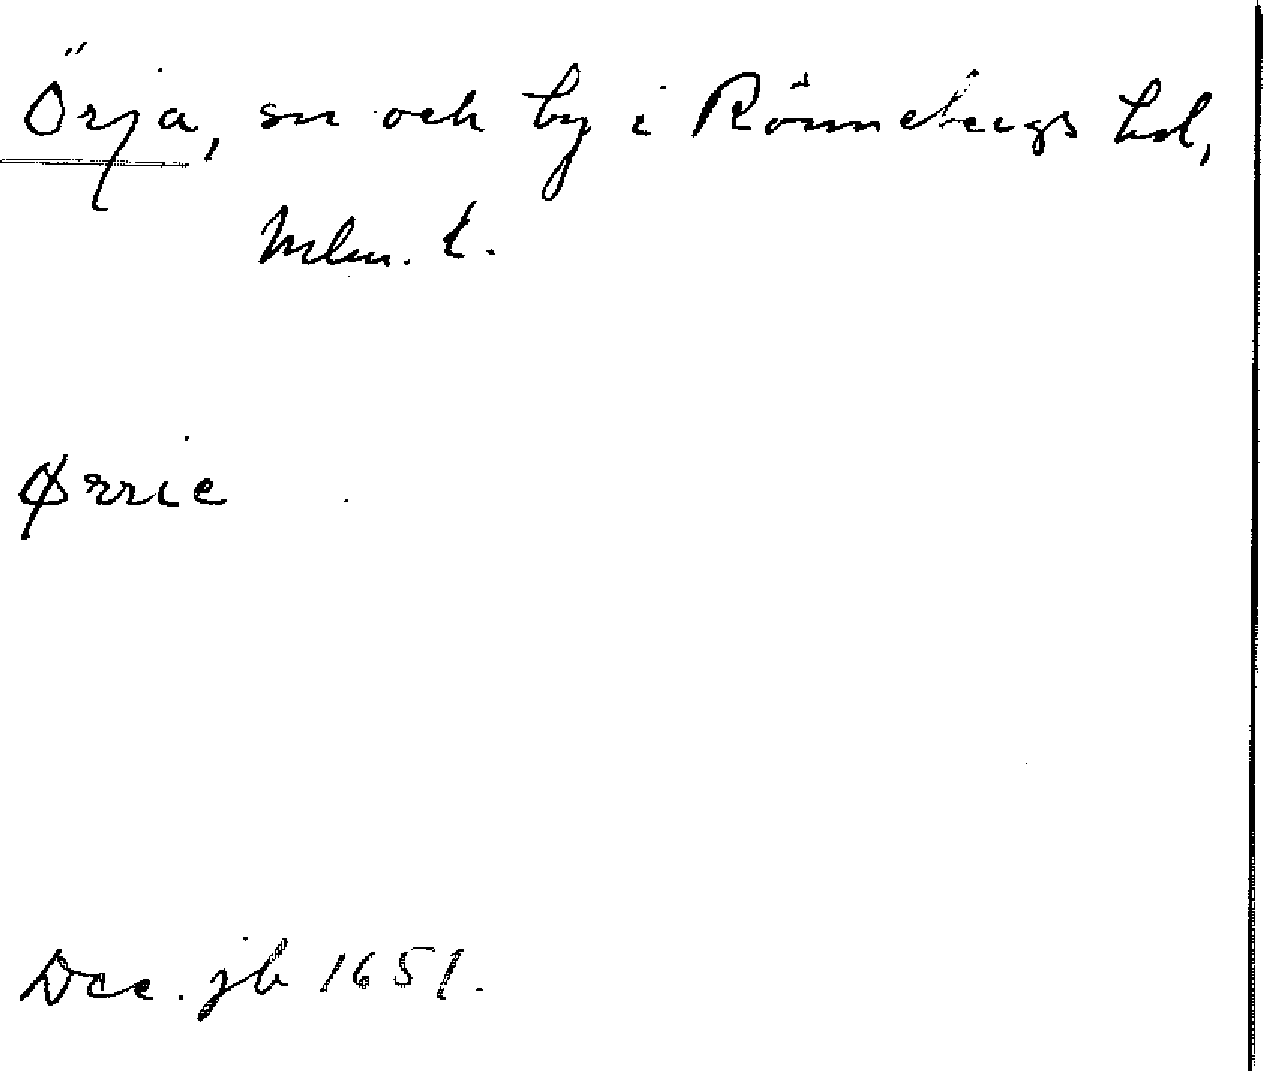 Örja, sn och by i Rönnebergs hd,
Mlm. l.
Ørrie
Dec. jb 1651.